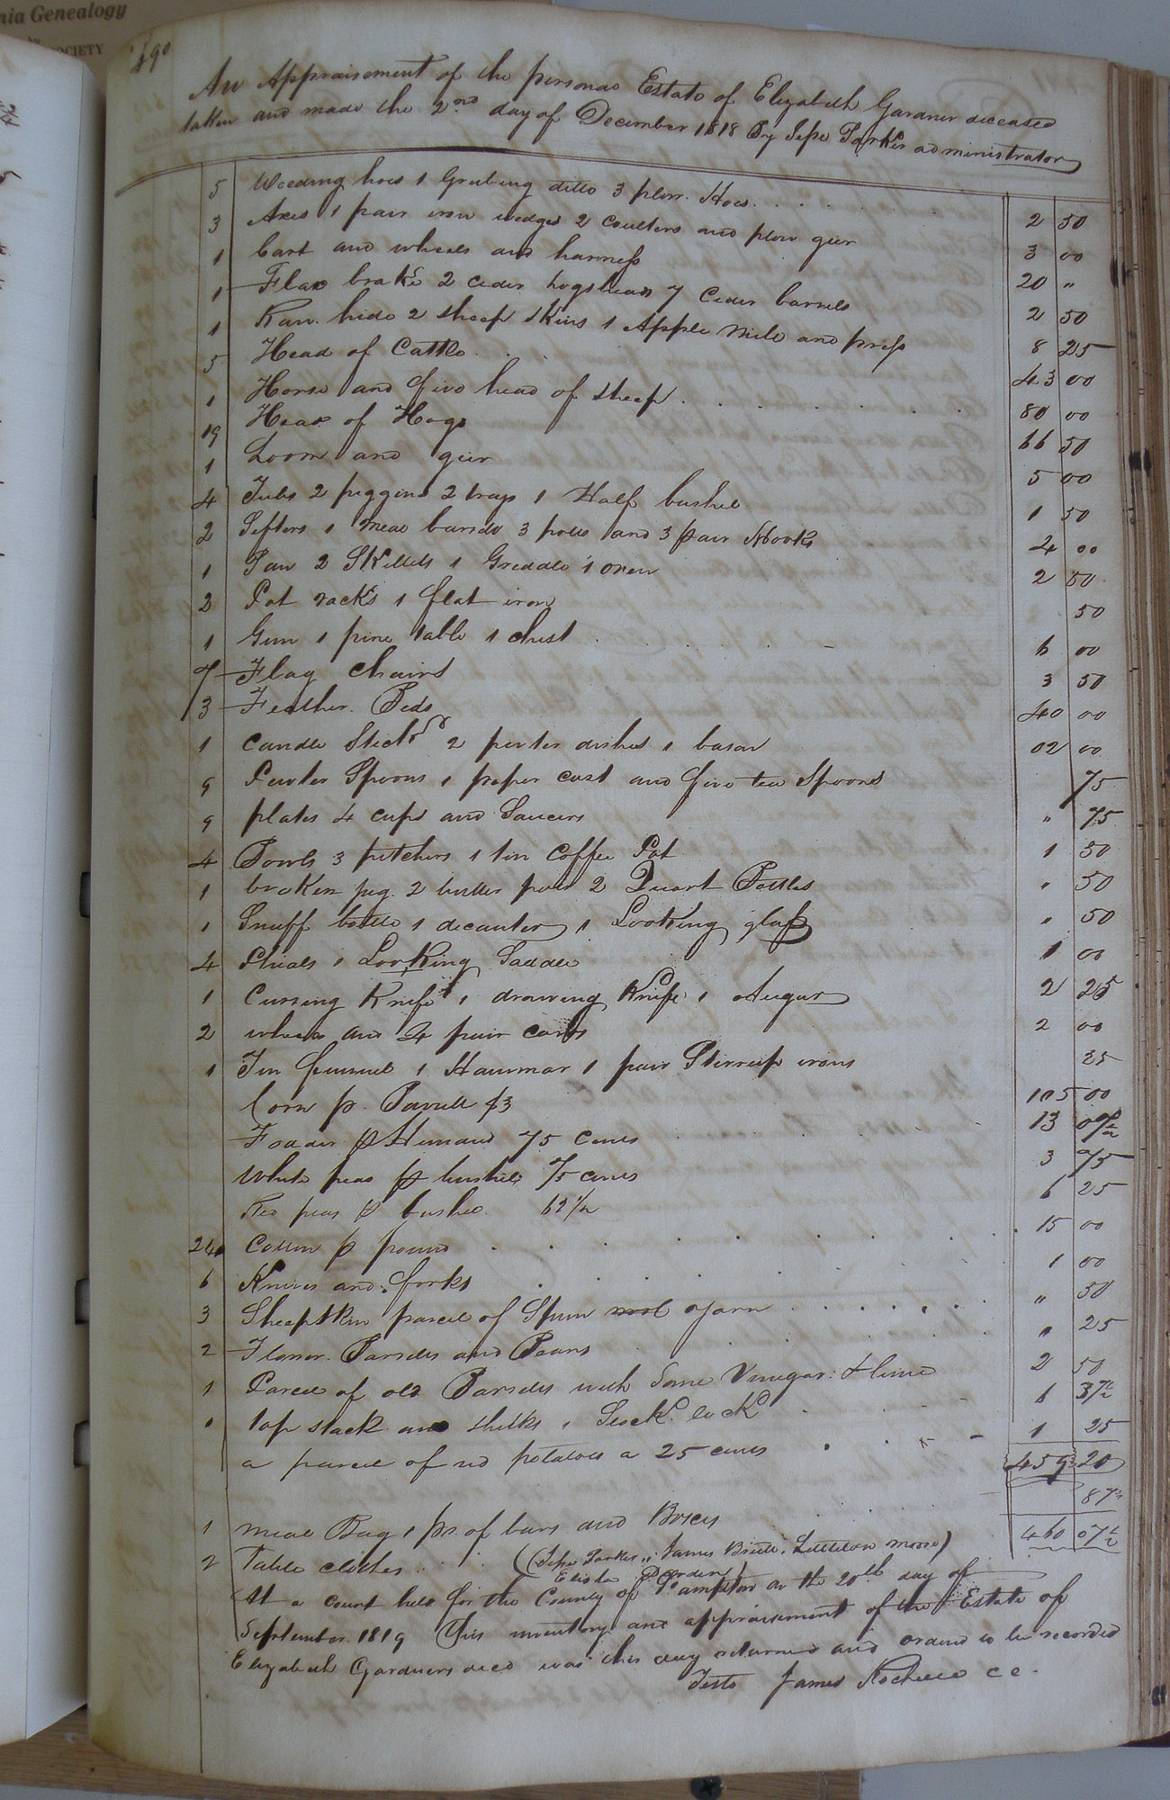 nia Genealogy
OCIETY
490
An Appraisement of the personal Estate of Elizabeth Gardner deceased
taken and made the 2nd day of December 1818 By Jesse Parker administrator
5 Weeding hoes 1 Grubing ditto 3 plow Hoes 2 50
3 Axes 1 pair iron wedges 2 coulters and plow geer 3 00
1 Cart and wheels and harness 20 "
1 Flax brake 2 ceder hogsheads 7 Ceder barrels 2 50
1 Raw hide 2 sheep skins 1 Apple mill and press 8 25
5 Head of Cattle 43 00
1 Horse and five head of sheep 80 00
19 Head of Hogs 66 50
1 Loom and geer 5 00
4 Tubs 2 piggins 2 trays 1 Half bushel 1 50
2 Sifters 1 meal barrel 3 potts and 3 pair Hooks 4 00
1 Pan 2 Skillets 1 Griddle 1 oven 2 50
2 Pot racks 1 flat iron 50
1 Gun 1 pine table 1 chest 6 00
7 Flag chairs 3 50
3 Feather Beds 40 00
1 Candle Stick 2 pewter dishes 1 bason 02 00
9 Pewter Spoons 1 peper cast and five tea Spoons 75
9 plates 4 cups and Saucers " 75
4 Bowls 3 pitchers 1 tin Coffee Pot 1 50
1 broken jug 2 butter pots 2 Quart Bottles " 50
1 Snuff bottle 1 decanter 1 Looking glass " 50
4 Phials 1 Saddle 1 00
1 Knife 1 drawing Knife 1 Augur 2 25
2 wheels and 4 pair cards 2 00
1 Tin funnel 1 Hammar 1 pair Stirrup irons 25
Corn pr Barrell $3 105 00
Fodder pr Hundred 75 cents 13
White peas pr bushel 75 cents 3 75
Red peas pr bushel 62 1/2 6 25
24 Cotton pr pound 15 00
6 Knives and forks 1 00
3 Sheepskin parcel of Spun yarn " 50
2 Flower Barrels and Beans " 25
1 Parcel of old Barrels with Some Vinegar 2 50
1 top stack and 1 Stock lock 6 37 1/2
a parcel of red potatoes a 25 cents 1 25
459 20
87 1/2
1 meal Bag 1 pr of bars and Boxes
460 07 1/2
2 Table clothes (Jesse Parker, James Britt, Littleton Moore)
Elisha Darden
At a court held for the County of Southampton on the 20th day of
September 1819 This inventory and appraisement of the Estate of
Elizabeth Gardners decd was this day returned and ordered to be recorded
Teste James Rochelle CC